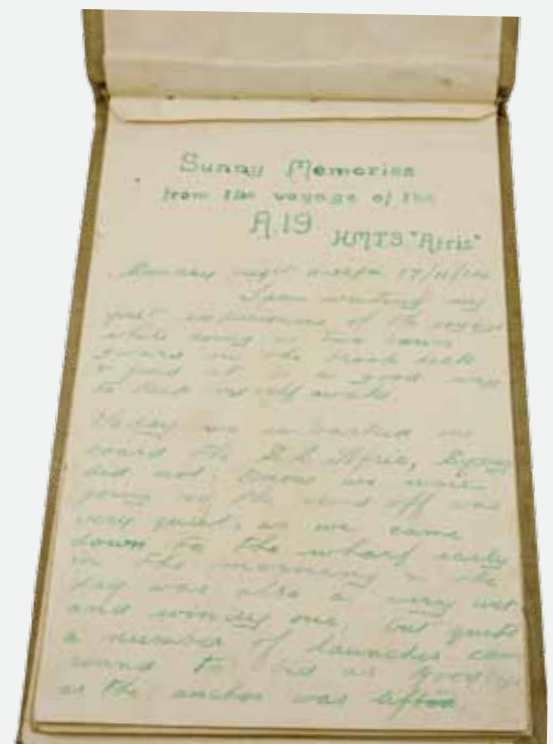 Sunny Memories
from the voyage of the
A.19 HMTS "Afric"
Sunday night 17/
I am writing my
experiences of the voyage
while doing a two hours
guard on the troop deck
& find it is a good way
to keep myself awake.
we embarked on
board the S.S. Afric,
did not know we were
going so the send off was
very quiet, as we came
down to the wharf early
in the morning & the
day was also a very wet
and windy one, but quite
a number of launches came
round to bid us goodbye
as the anchor was lifted.